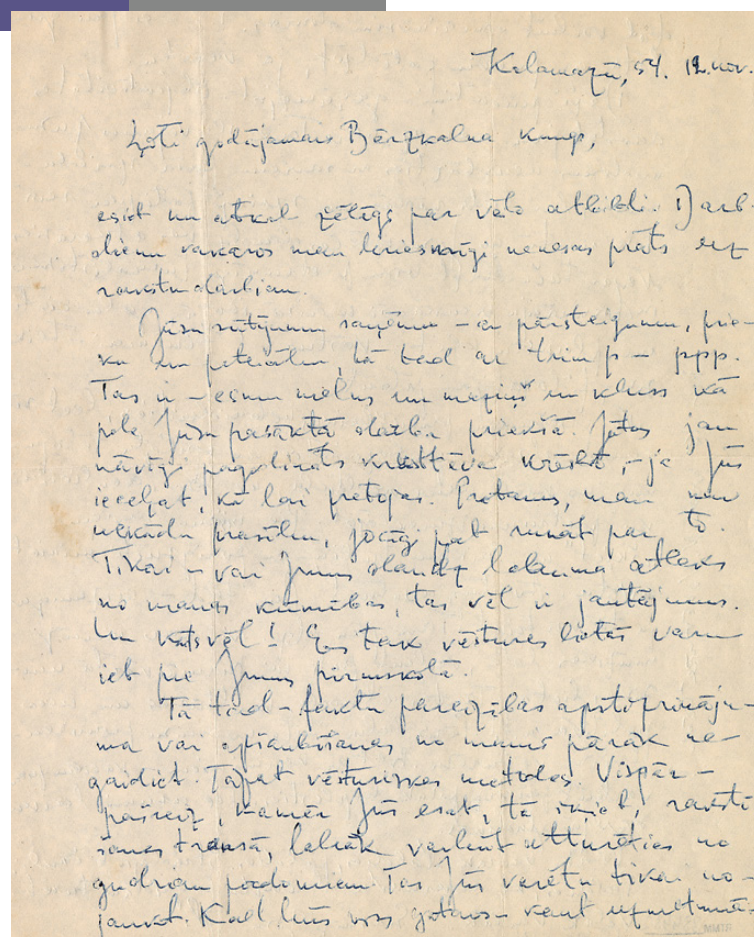 Kalamazū, 54. 12. nov.
Ļoti godājamais Bērzkalna kungs,
esiet un atkal žēlīgs par vēlo atbildi. Darb-
dienu vakaros man briesmīgi nenesas prāts uz
rakstu darbiem.
Jūsu sūtījumu saņēmu – ar pārsteigumu, prie-
ku un pateicību, tā tad ar trim p – ppp.
Tas ir – esmu mēms un maziņš un kluss kā
pele Jūsu pastrādātā darba priekšā. Jūtos jau
nāvīgi pagodināts krusttēva krēslā, – ja Jūs
ieceļat, kā lai pretojas. Protams, man nav
nekādu prasību, jocīgi pat runāt par to.
Tikai – vai Jums daudz labuma atlēks
no manas kūmības, tas vēl ir jautājums.
Un kāds vēl! Es tak vēstures lietās varu
iet pie Jums pirmskolā.
Tā tad – faktu pareizības apstiprināju-
ma vai apšaubīšanas no manis pārāk ne-
gaidiet. Tāpat vēsturiskas metodes. Vispār –
pašreiz, kamēr Jūs esat, tā sakot, rakstī-
šanas transā, labāk varbūt atturēties no
gudriem padomiem. Tas Jūs varētu tikai no-
jaukt. Kad būs viss gatavs – kaut uzmetumā